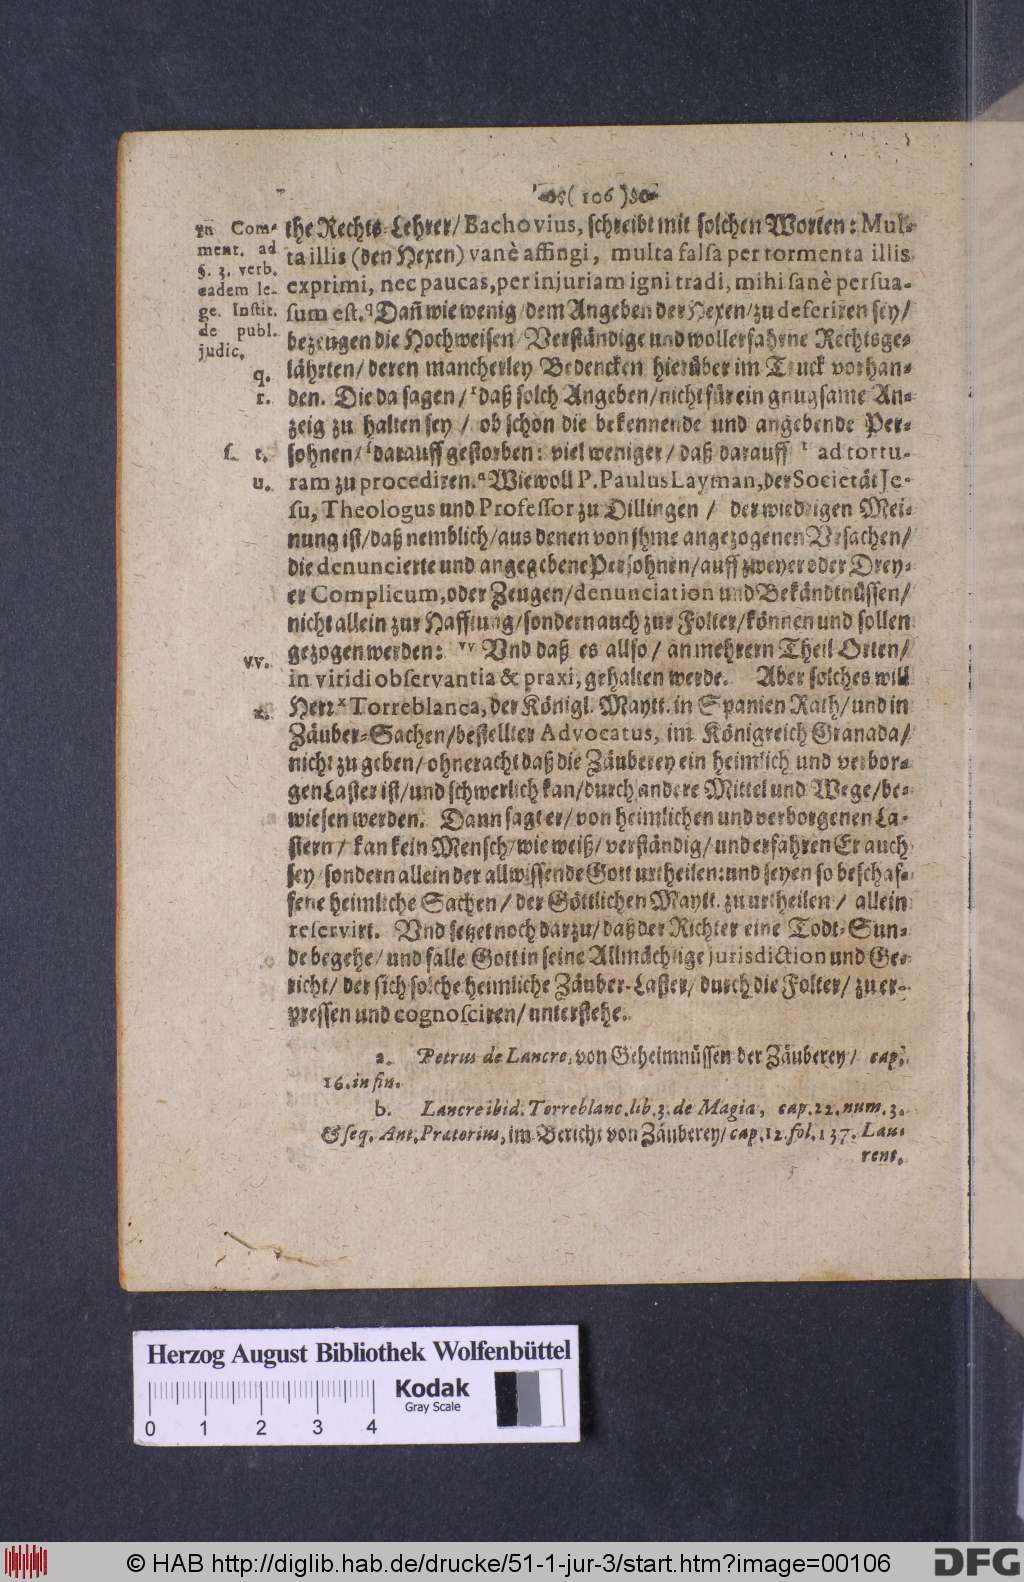 (106)
in Com-
ment. ad
§. 3. verb.
eadem le-
ge. Instit.
de publ.
judic.
q.
r.
ſ. t.
u.
vv.
x.
the Rechts-Lehrer/ Bachovius, ſchreibt mit ſolchen Worten: Mul-
ta illis (den Hexen) vanè affingi, multa falſa per tormenta illis
exprimi, nec paucas, per injuriam igni tradi, mihi ſanè perſua-
ſum eſt. q Dañ wie wenig/ dem Angeben der Hexen/ zu deferiren ſey/
bezeugen die Hochweiſen/ Verſtändige und wollerfahrne Rechtsge-
lährten/ deren mancherley Bedencken hierüber im Truck vorhan-
den. Die da ſagen/ r daß ſolch Angeben/ nicht für ein gnugſame An-
zeig zu halten ſey/ ob ſchon die bekennende und angebende Per-
ſohnen/ ſ darauff geſtorben: viel weniger/ daß darauff t ad tortu-
ram zu procediren. u Wiewoll P. Paulus Layman, der Societät Je-
ſu, Theologus und Profeſſor zu Dillingen/ der wiedrigen Mei-
nung iſt/ daß nemblich/ aus denen von jhme angezogenen Vrſachen/
die denuncierte und angegebene Perſohnen/ auff zweyer oder Drey-
er Complicum, oder Zeugen/ denunciation und Bekändtnüſſen/
nicht allein zur Hafftung/ ſondern auch zur Folter/ können und ſollen
gezogen werden: vv Vnd daß es allſo/ an mehrern Theil Orten/
in viridi obſervantia & praxi, gehalten werde. Aber ſolches will
Herr x Torreblanca, der Königl. Maytt. in Spanien Rath/ und in
Zäuber-Sachen/ beſtellter Advocatus, im Königreich Granada/
nicht zu geben/ ohneracht daß die Zäuberey ein heimlich und verbor-
gen Laſter iſt/ und ſchwerlich kan/ durch andere Mittel und Wege/ be-
wieſen werden. Dann ſagt er/ von heimlichen und verborgenen La-
ſtern/ kan kein Menſch/ wie weiß/ verſtändig/ und erfahren Er auch
ſey/ ſondern allein der allwiſſende Gott urtheilen: und ſeyen ſo beſchaf-
fene heimliche Sachen/ der Göttlichen Maytt. zu urtheilen/ allein
reſervirt. Vnd ſetzet noch darzu/ daß der Richter eine Todt-Sün-
de begehe/ und falle Gott in ſeine Allmächtige jurisdiction und Ge-
richt/ der ſich ſolche heimliche Zäuber-Laſter/ durch die Folter/ zu er-
preſſen und cognoſciren/ unterſtehe.
a. Petrus de Lancre, von Geheimnüſſen der Zäuberey/ cap.
16. in fin.
b. Lancre ibid. Torreblanc. lib. 3. de Magia, cap. 22. num. 3.
& ſeq. Ant. Prætorius, im Bericht von Zäuberey/ cap. 12. fol. 137. Lau-
rent.
Herzog August Bibliothek Wolfenbüttel
Kodak
Gray Scale
0 1 2 3 4
© HAB http://diglib.hab.de/drucke/51-1-jur-3/start.htm?image=00106
DFG